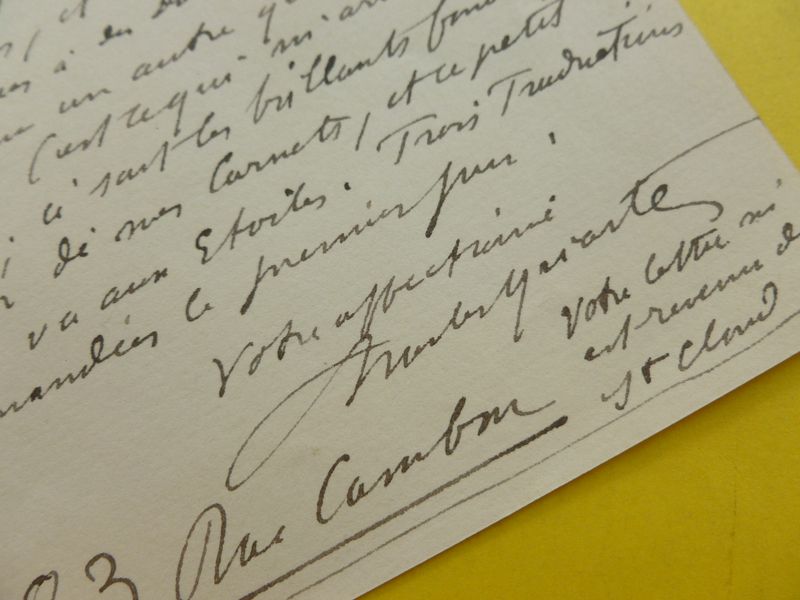 un autre
C'est ce qui m'a
sont les brillants
de mes Carnets, et ce petit
va aux Etoiles. Trois Traductions
le premier jour.
Votre affectionné
Charles Yriarte
Votre lettre m'
est revenue de
St Cloud
23 Rue Cambon